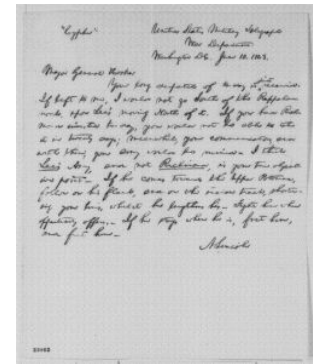 "Cypher"
United States Military Telegraph
War Department
Washington D.C. June 10, 1863.
Major General Hooker
Your long despatch of to-day is just received.
If left to me, I would not go South of the Rappahan-
nock, upon Lee's moving North of it. If you had Rich-
mond invested to-day, you would not be able to take
it in twenty days; meanwhile, your communications, and
with them, your army would be ruined. I think
Lee's Army, and not Richmond, is your true object-
ive point. If he comes towards the Upper Potomac,
follow on his flank, and on the inside track, shorten-
ing your lines, whilst he lengthens his. Fight him when
oppertunity offers. If he stays where he is, fret him,
and fret him.
A. Lincoln